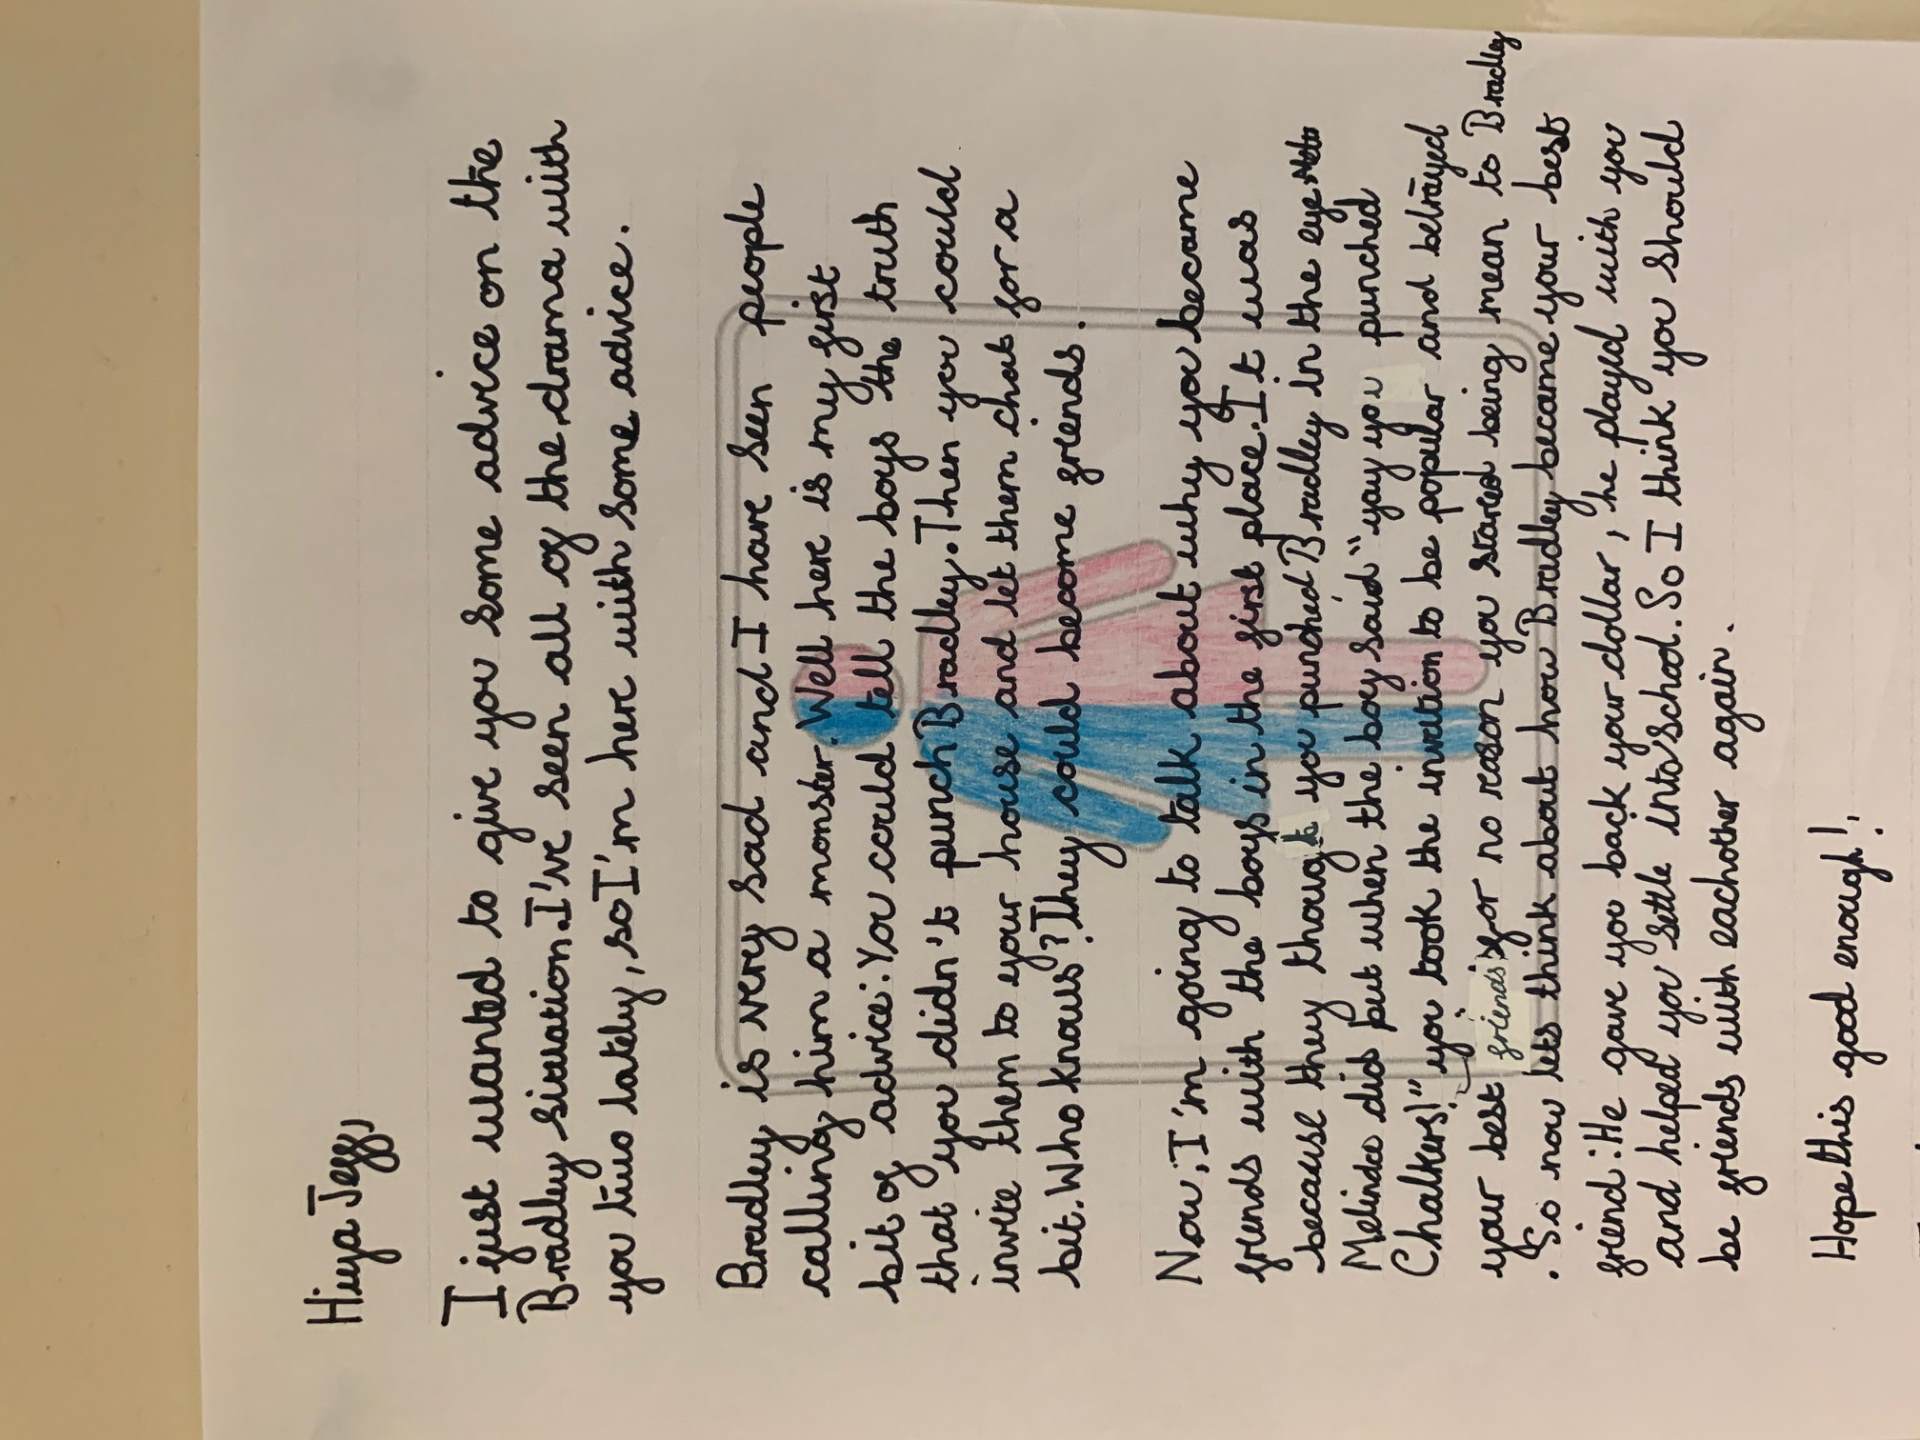 Hiya Jeff,
I just wanted to give you some advice on the
Bradley situation. I've seen all of the drama with
you two lately, so I'm here with some advice.
Bradley is very sad and I have seen people
calling him a monster. Well here is my first
bit of advice: You could tell the boys the truth
that you didn't punch Bradley. Then you could
invite them to your house and let them chat for a
bit. Who knows? They could become friends.
Now, I'm going to talk about why you became
friends with the boys in the first place. It was
because they thought you punched Bradley in the eye
Melinda did but when the boy said "yay you punched
Chalkers!" you took the invation to be popular and betrayed
your best friend for no reason you stared being mean to Bradley
. So now lets think about how Bradley became your best
friend: He gave you back your dollar, he played with you
and helped you settle into school. So I think you should
be friends with eachother again.
Hope this good enough!,